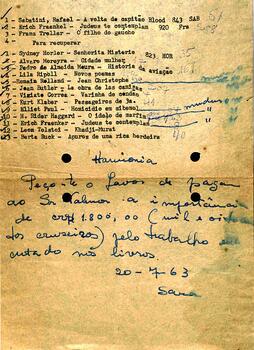 1 - Sabatini, Rafael - A volta de capitão Blood 843 SAB
2 - Erich Fraenkel - Judeus te contemplam 920 Fra
3 - Franz Treller - O filho do gaucho
Para recuperar
1 - Sydney Horler - Senhorita Misterio 823 HOR
2 - Alvaro Moreyra - Cidade mulher
3 - Pedro de Almeida Moura - Historia da aviação
4 - Lila Ripoll - Novos poemas
5 - Romain Rolland - Jean Christophe
6 - Jean Butler - la obra de las
7 - Viriato Correia - Varinha de condão
8 - Kurt Klaber - Passageiros da
9 - Milliet Paul - Homicidio en
10 - H. Rider Haggard - O idolo de
11 - Erich Fraenker - Judeus te contemplam
12 - Leon Tolstoi - Khadji-Murat
13 - Berta Ruck - Apuros de uma rica herdeira
Harmonia
Peço-te o favor de pagar
ao Sr. Palmos a importância
de cr$ 1.800,00 (mil e oi
tos cruzeiros) pelo trabalho ex
cutado nos livros.
20-7-63
Sara